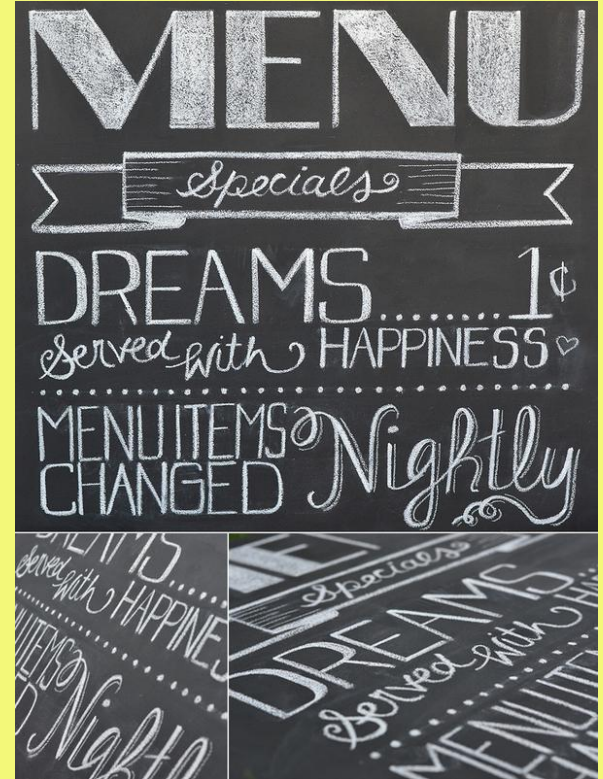 MENU
Specials
DREAMS........1¢
Served with HAPPINESS♡
MENU ITEMS
CHANGED Nightly
DREAMS......
Served with HAPPINES
MENU ITEMS
D Nightly
MENU
Specials
DREAMS
Served with HA
MENU ITEMS